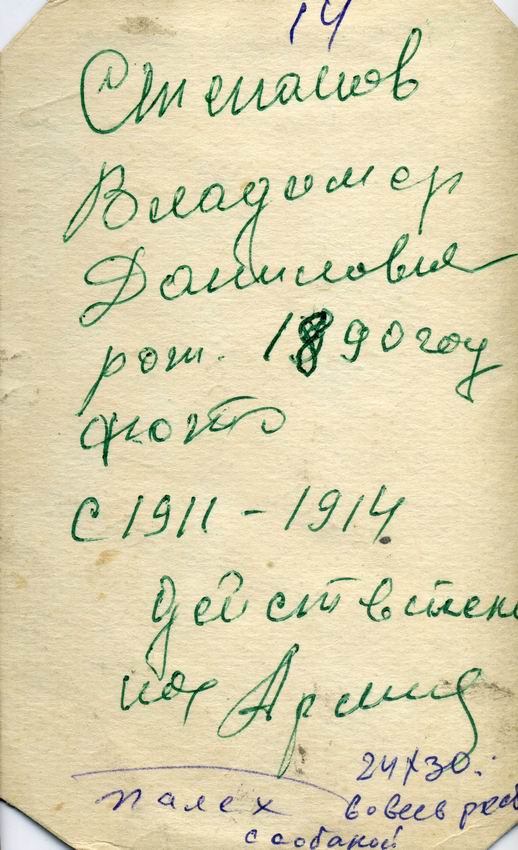 14
Степанов
Владимер
Данилович
рож. 1890 году
фото
с 1911 - 1914
действтен
ная Армия
24х30.
палех во весь рост
с собакой